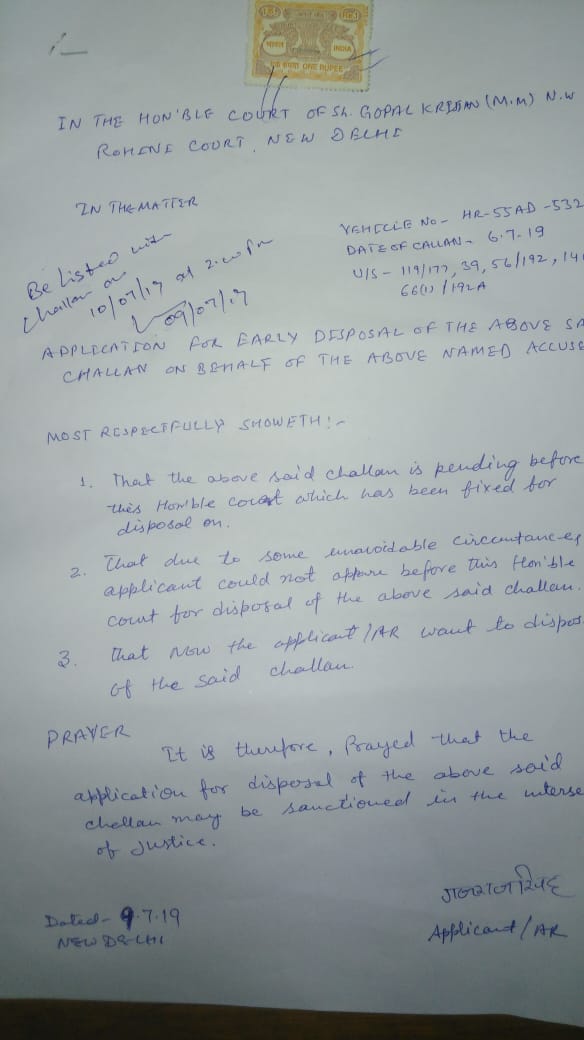 भारत INDIA
ONE RUPEE
IN THE HON'BLE COURT OF Sh. GOPAL KRISHAN (M.M) N.W
ROHINI COURT, NEW DELHI
IN THE MATTER
VEHICLE No - HR-55AD-532
DATE OF CALLAN - 6.7.19
U/S - 119/177, 39, 56/192, 14
66(1) / 192A
Be listed with
challan on
10/07/19 at 2.00 Pm
09/07/19
APPLICATION FOR EARLY DISPOSAL OF THE ABOVE SA
CHALLAN ON BEHALF OF THE ABOVE NAMED ACCUSE
MOST RESPECTFULLY SHOWETH :-
1. That the above said challan is pending before
this Hon'ble court which has been fixed for
disposal on.
2. That due to some unavoidable circumtances
applicant could not appear before this Hon'ble
court for disposal of the above said challan.
3. that Now the applicant / AR want to dispos
of the said challan.
PRAYER
It is therefore, Prayed that the
application for disposal of the above said
challan may be sanctioned in the interse
of Justice.
Dated - 9.7.19
NEW DELHI
Applicant / AR